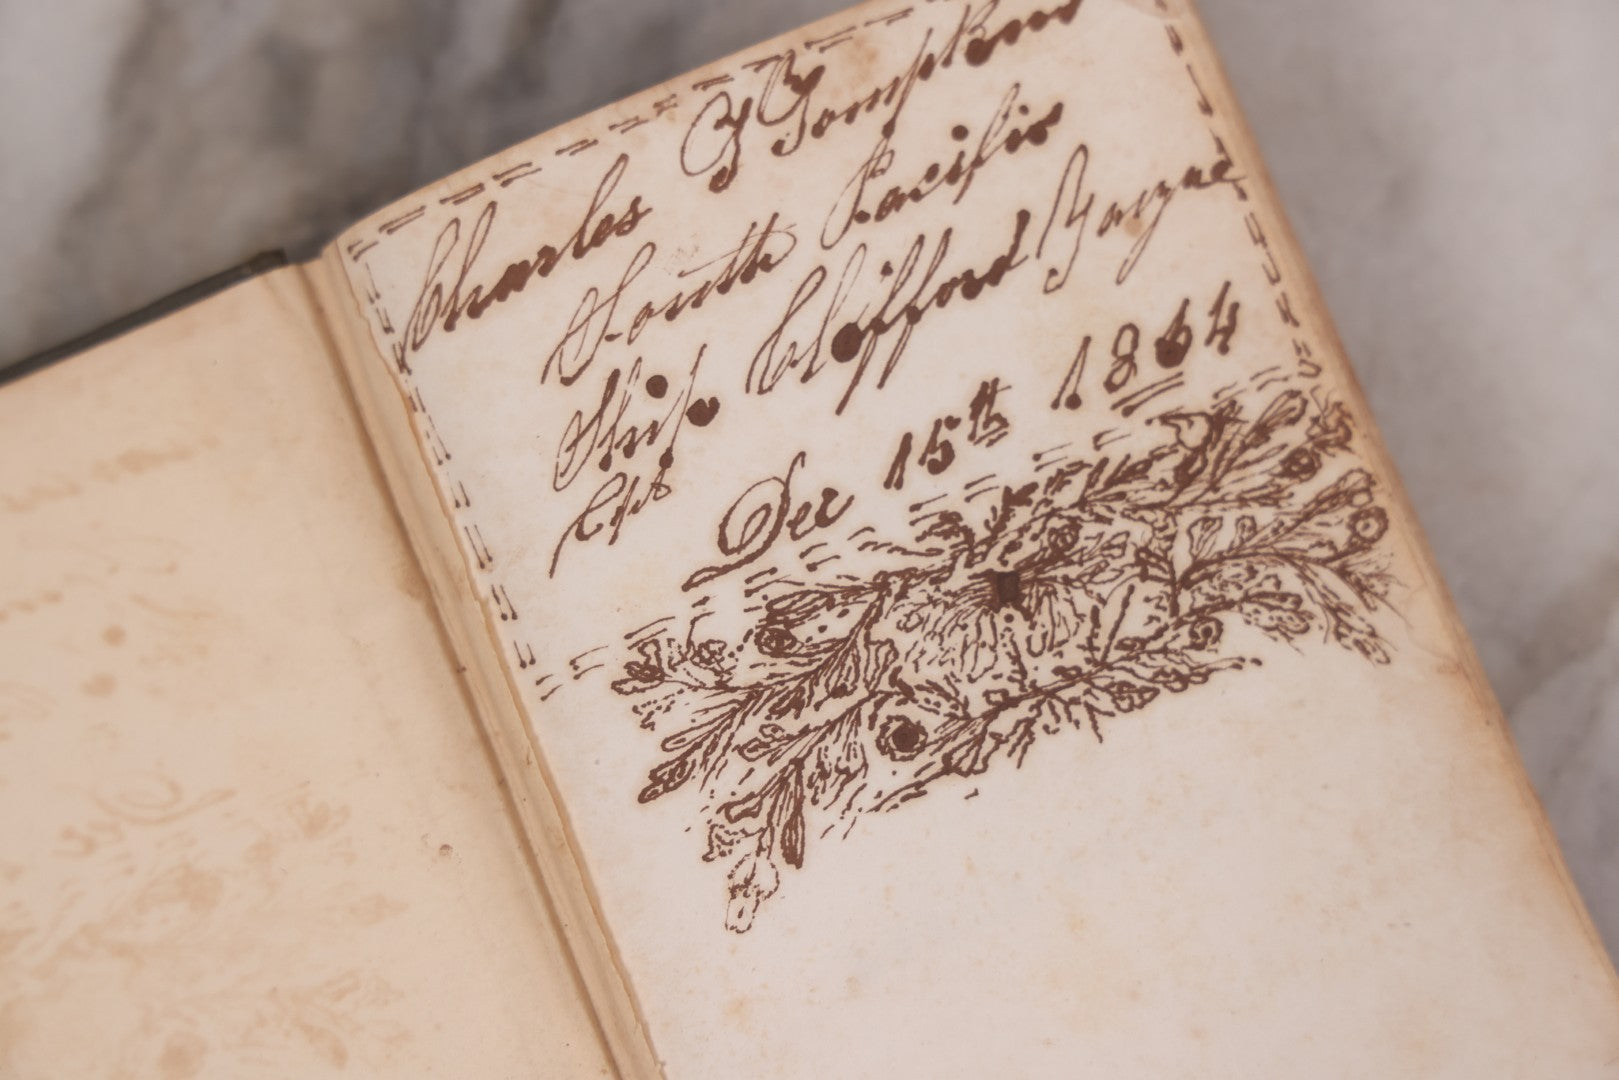 Charles Tompkins
South Pacific
Ship Clifford Wayne
Cpt
Dec 15th 1864